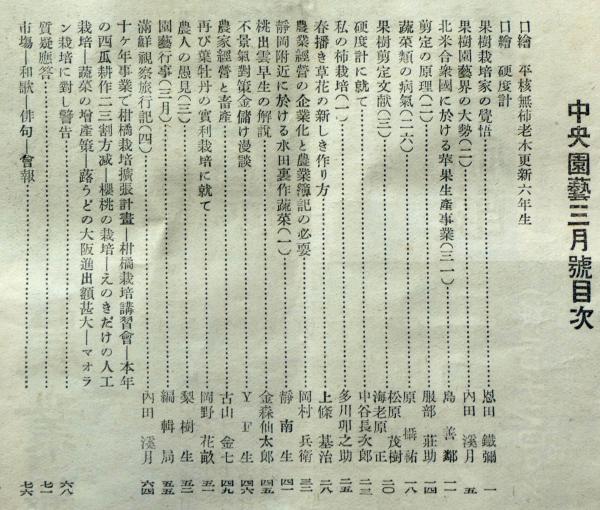 中央園藝三月號目次
口繪 平核無柿老木更新六年生
口繪 硬度計
果樹栽培家の覺悟 恩田 鐵彌 一
果樹園藝界の大勢(二) 內田 溪月 五
北米合衆國に於ける苹果生產事業(三一) 島 善鄰 一一
剪定の原理(二) 服部 莊助 一四
蔬菜類の病氣(二六) 原 攝祐 一八
果樹剪定文献(三) 松原 茂樹 二〇
硬度計に就て 海老原 正 中谷長次郎 二三
私の柿栽培(一) 多川卯之助 二五
春播き草花の新しき作り方 上條 基治 二八
農業經營の企業化と農業簿記の必要 岡村 兵衛 三二
靜岡附近に於ける水田裏作蔬菜(一) 靜南生 四一
桃出雲早生の解說 金森仙太郎 四五
不景氣對策金儲け漫談 YF生 四六
農家經營と畜產 古山 金七 四九
再び葉牡丹の實利栽培に就て 岡野 花畝 五一
農人の愚見(三) 梨樹生 五二
園藝行事(三月) 編輯局 五五
滿鮮視察旅行記(四) 內田 溪月 六四
十ヶ年事業で柑橘栽培擴張計畫―柑橘栽培講習會―本年
の西瓜耕作二三割方減―櫻桃の栽培―えのきだけの人工
栽培―蔬菜の增產策―蕗うどの大阪進出額甚大―マオラ
ン栽培に對し警告 六八
質疑應答 七一
市場―和歌―俳句―會報 七六